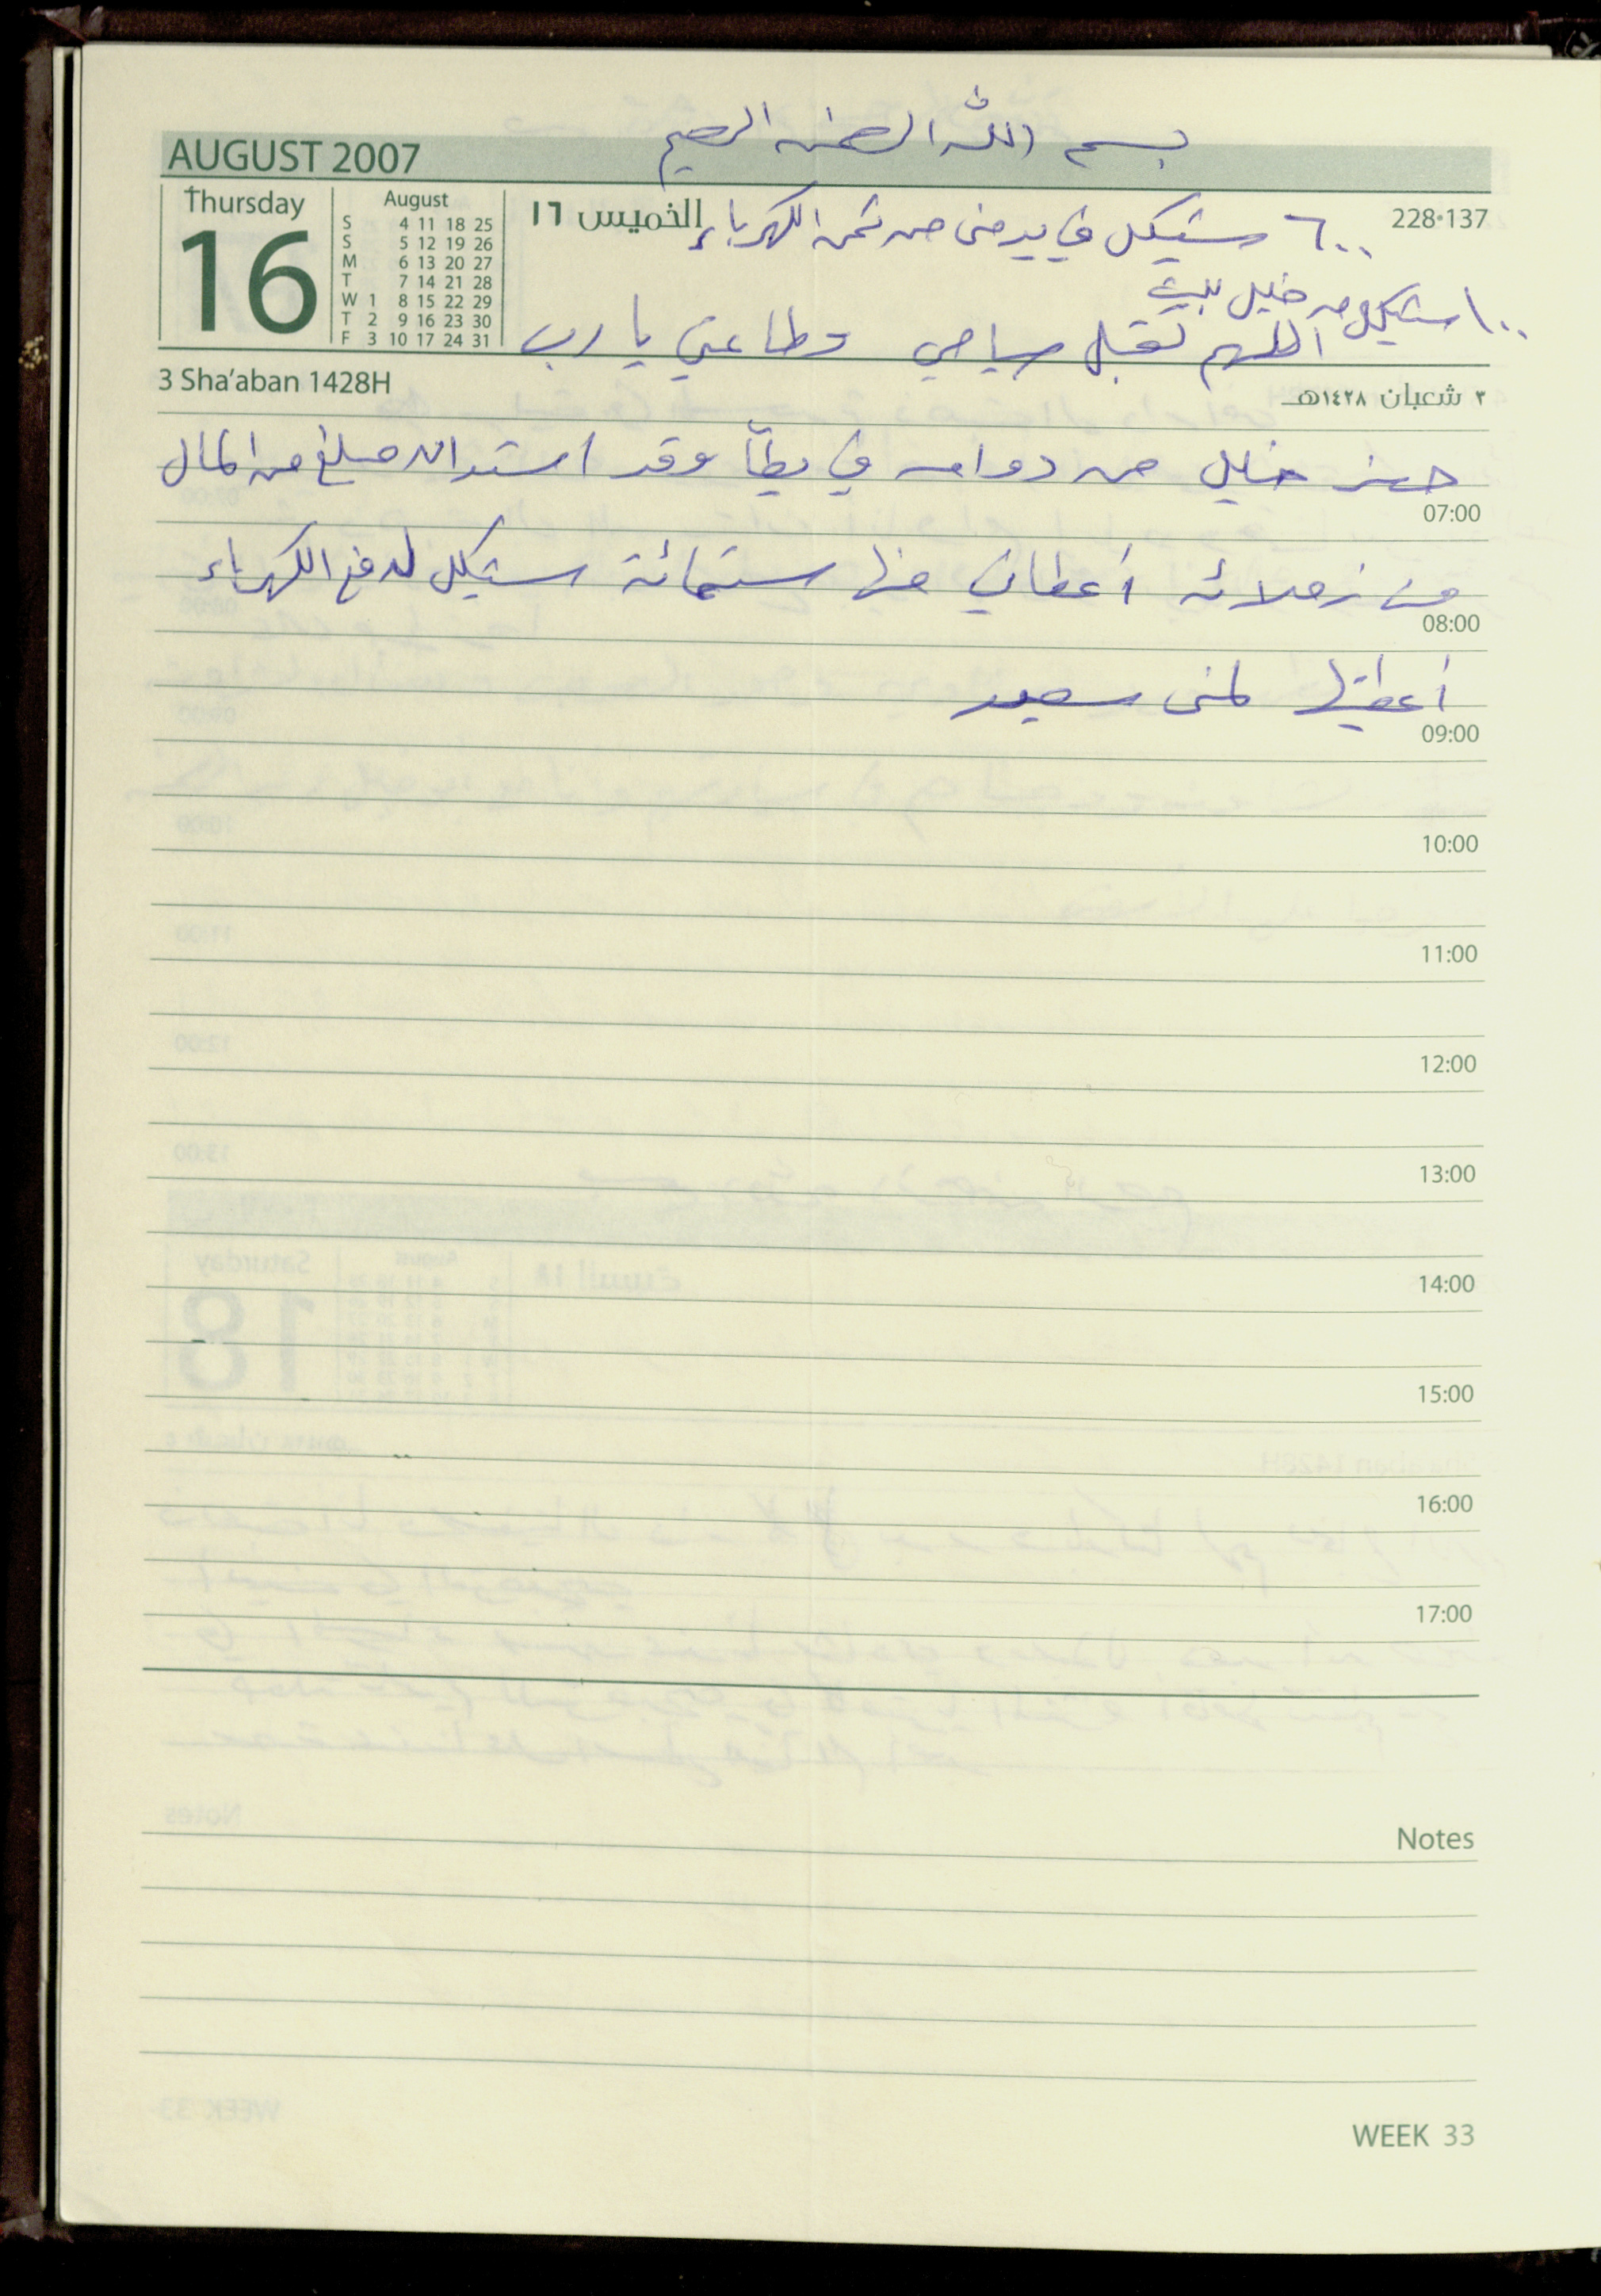 بسم الله الرحمن الرحيم
AUGUST 2007
Thursday
16
August
S 4 11 18 25
S 5 12 19 26
M 6 13 20 27
T 7 14 21 28
W 1 8 15 22 29
T 2 9 16 23 30
F 3 10 17 24 31
الخميس ١٦
228-137
٦٠٠ ستيكل في يد منى من ثمن الكهرباء
١٠٠ ستيكل من خليل للبيت
اللهم تقبل صيامي وطاعتي يا رب
3 Sha'aban 1428H
٣ شعبان ١٤٢٨هـ
حضر خليل من دوامه في يطا وقد استدان مبلغ من المال
07:00
من زملائه أعطاني منها ستمائة ستيكل لدفع الكهرباء
08:00
أعطيتها لمنى سعيد
09:00
10:00
11:00
12:00
13:00
14:00
15:00
16:00
17:00
Notes
WEEK 33